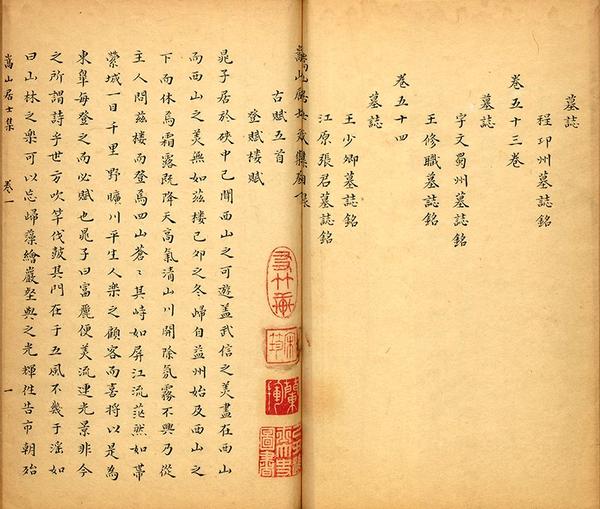 墓誌
程邛州墓誌銘
卷五十三卷
墓誌
宇文蜀州墓誌銘
王修職墓誌銘
卷五十四
墓誌
王少卿墓誌銘
江原張君墓誌銘
嵩山居士文集
古賦五首
登賦樓賦
晁子居於硤中已聞西山之可遊蓋武信之美盡在西山
而西山之美無如茲樓已夘之冬歸自益州始及西山之
下而休焉霜露既降天高氣清山川開除氛霧不興乃從
主人問茲樓而登焉四山蒼々其峙如屏江流茫然如帶
縈城一日千里野曠川平生人樂之顧客而喜將以是為
東皐每登之而必賦也晁子曰富麗便美流連光景非今
之所謂詩乎世方吹竽伐鼓其門在于五風不幾于滛如
曰山林之樂可以忘歸藻繪巖壑與之光輝徃告市朝殆
嵩山居士集 卷一 一
圖書